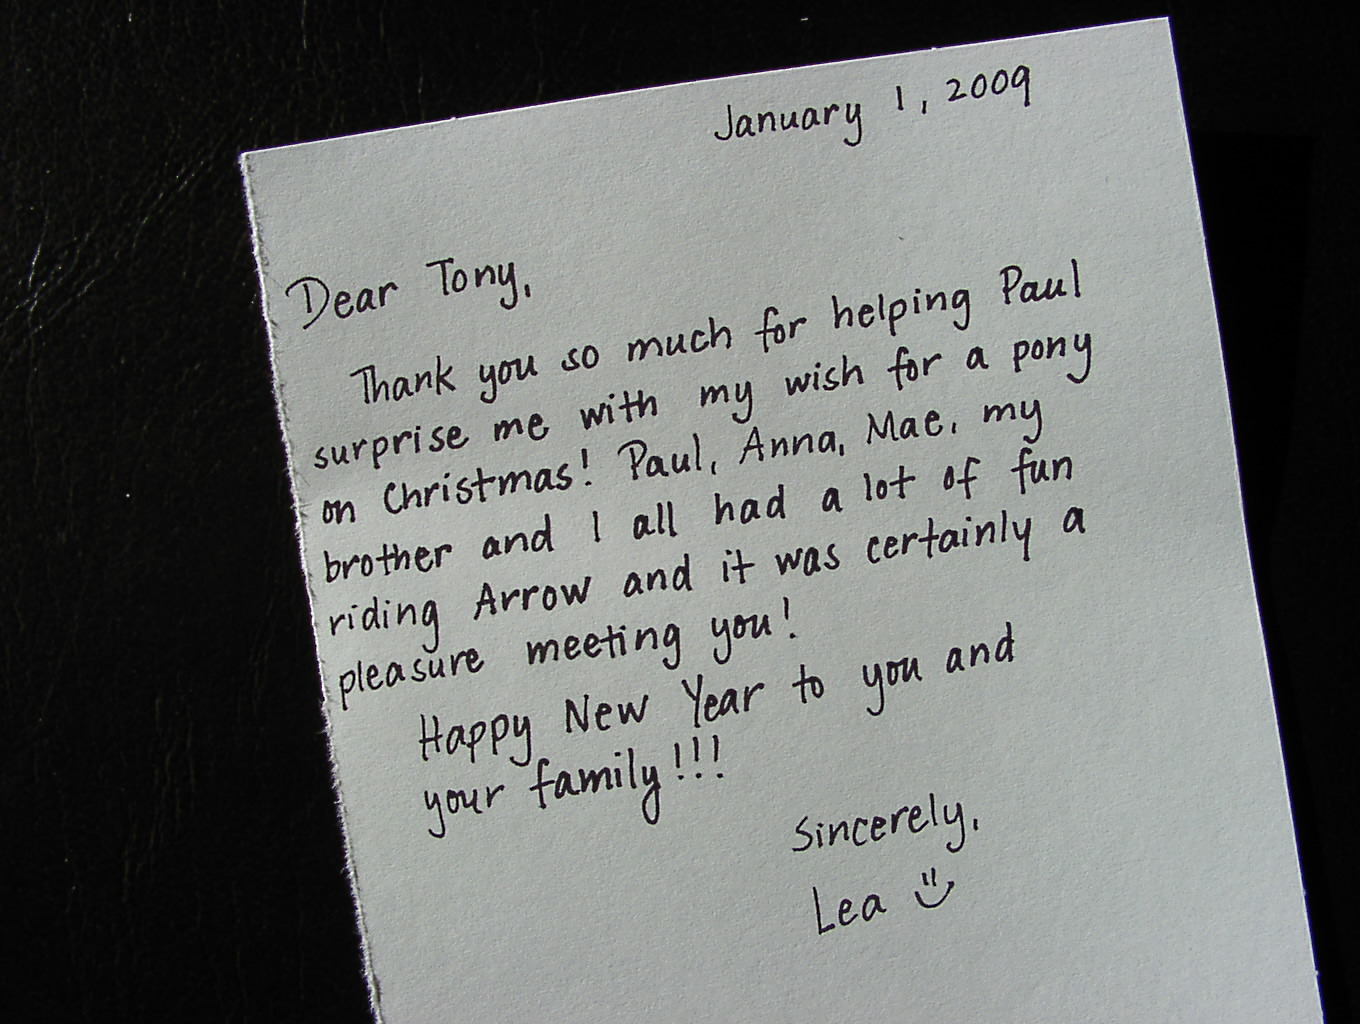 January 1, 2009
Dear Tony,
Thank you so much for helping Paul
surprise me with my wish for a pony
on Christmas! Paul, Anna, Mae, my
brother and I all had a lot of fun
riding Arrow and it was certainly a
pleasure meeting you!
Happy New Year to you and
your family!!!
Sincerely,
Lea